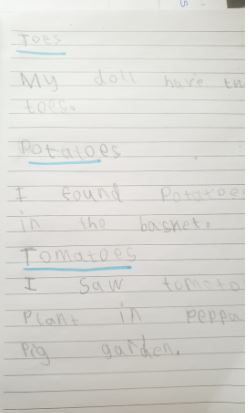 Toes
My doll have
toes.
Potatoes
I found Potatoe
in the basket.
Tomatoes
I saw tomato
Plant in Peppa
Pig garden.